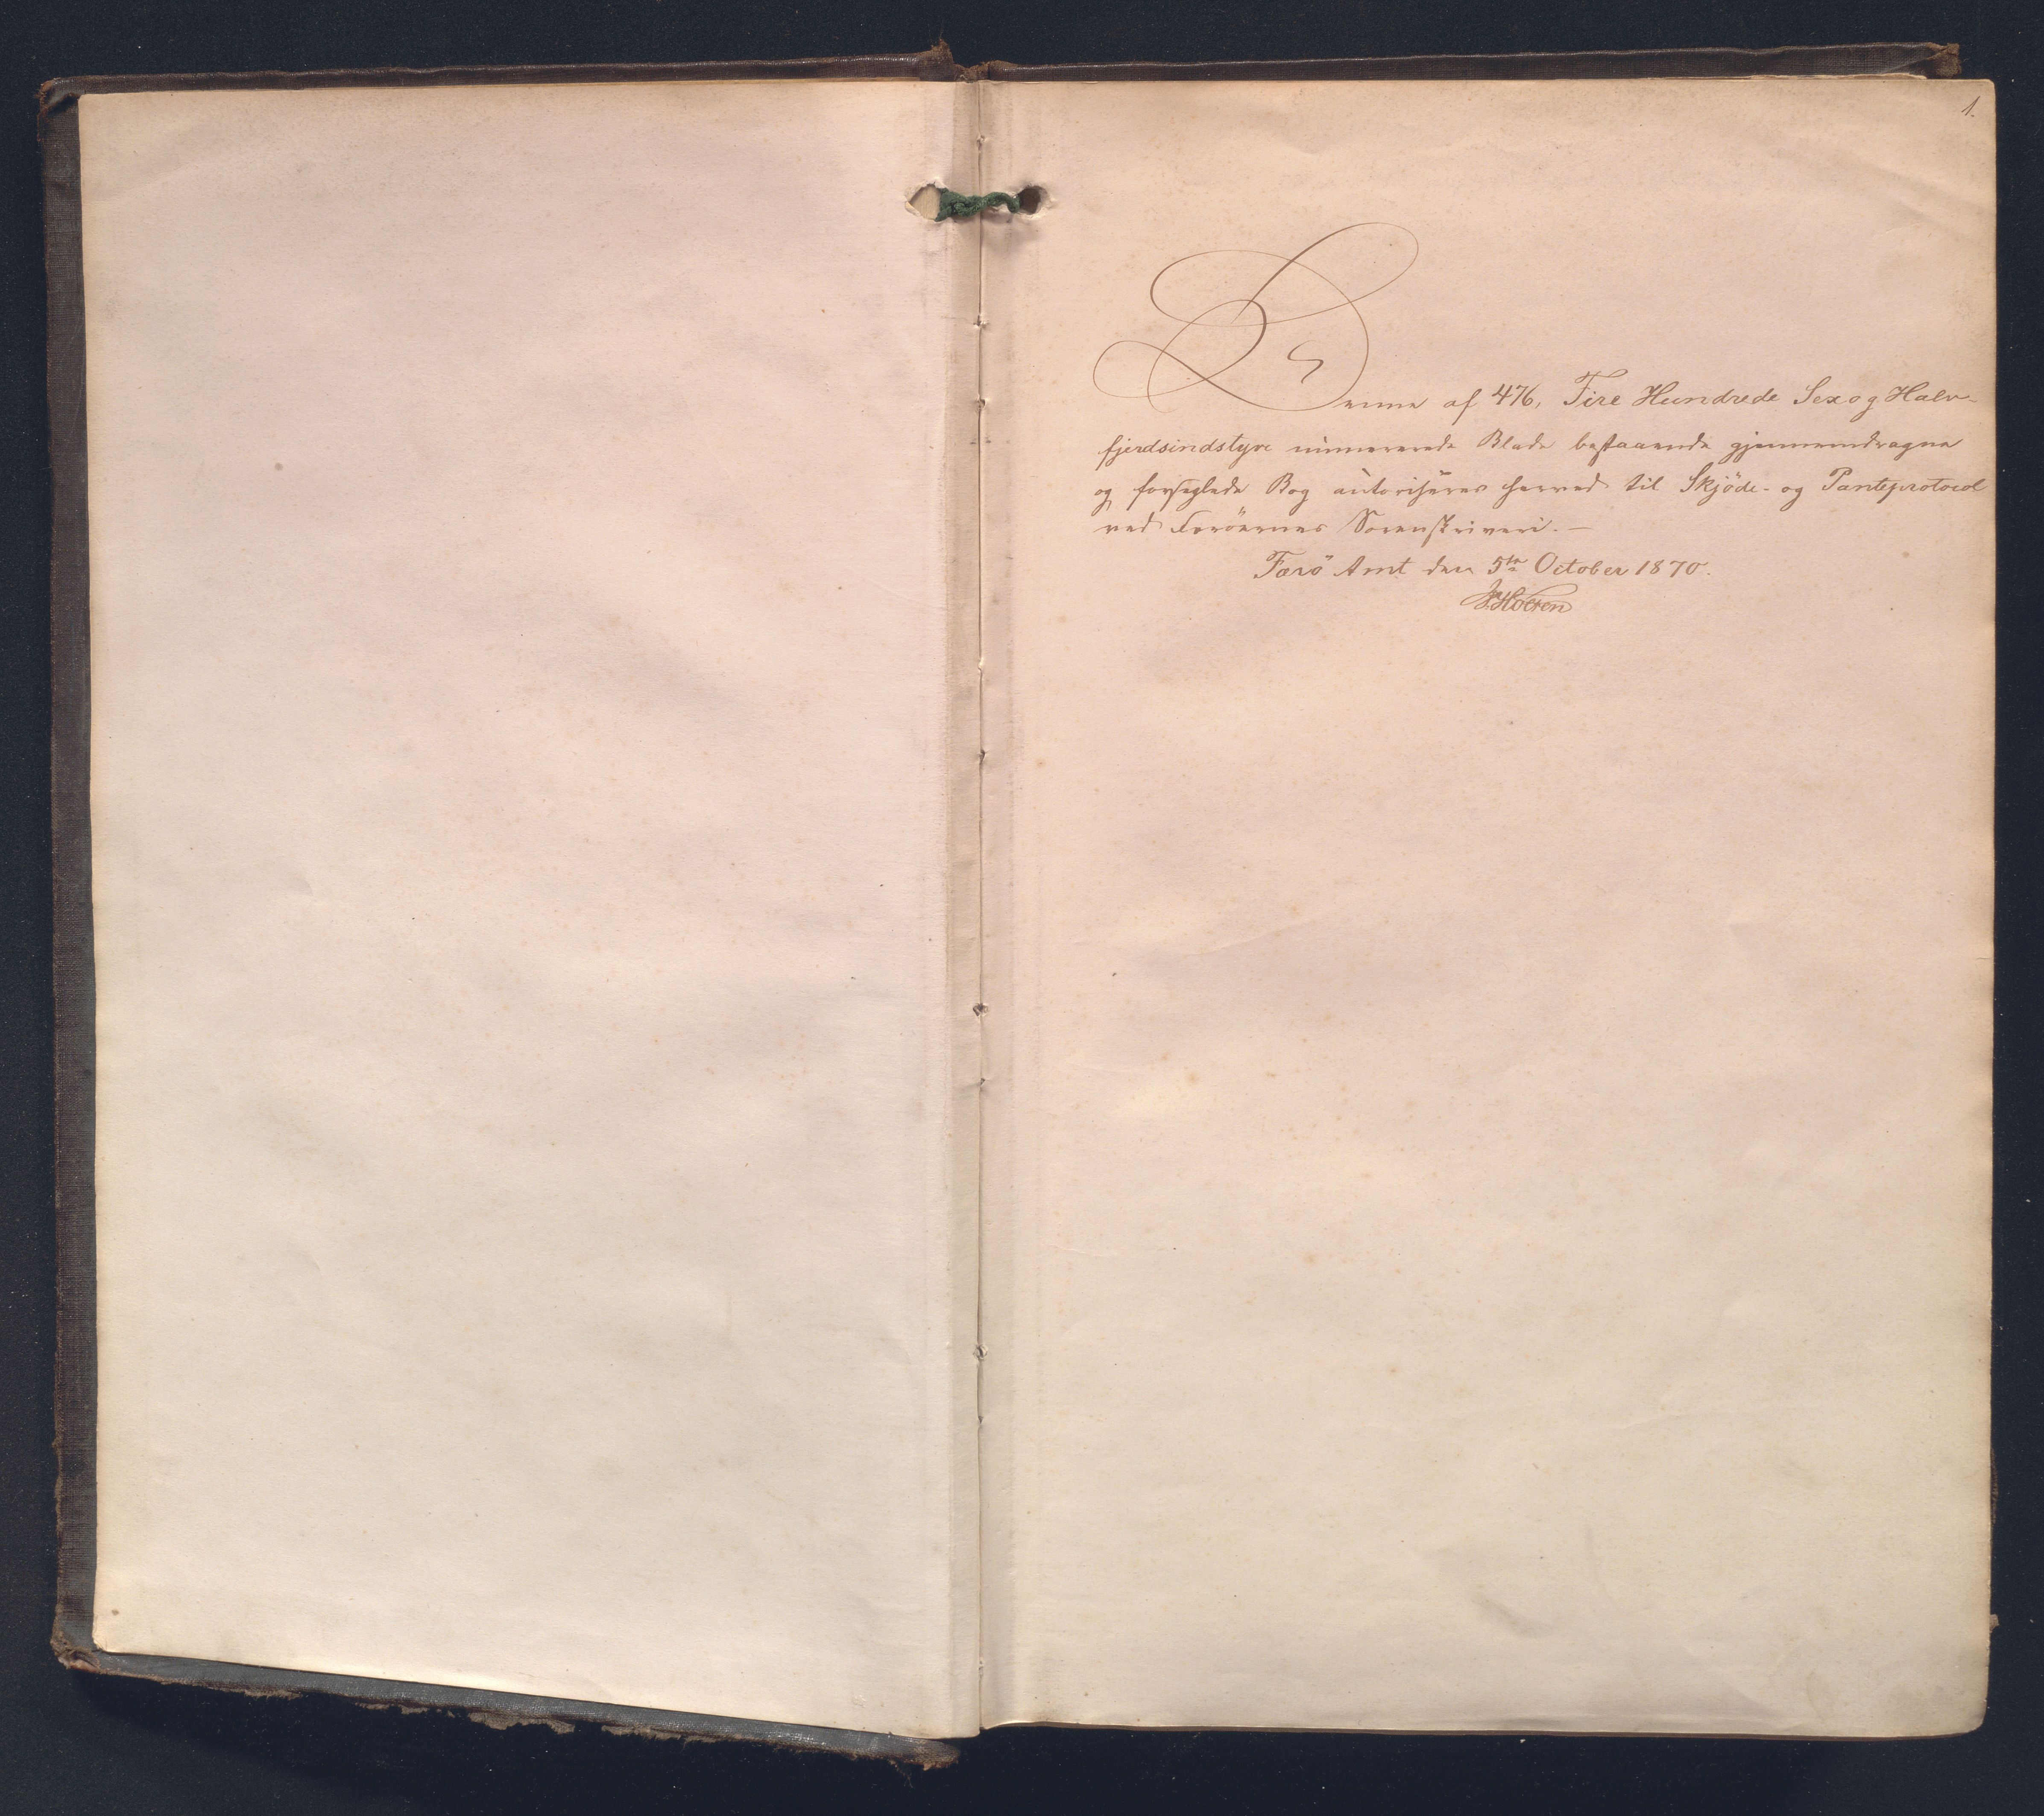 1.
Denne af 476, Fire Hundrede Sex og Halv-
fjerdsindstyve nummererede Blade bestaaende gjennemdragne
og forseglede Bog autoriseres herved til Skjöde- og Panteprotocol
ved Færöernes Sorenskriveri. —
Færö Amt den 5te October 1870.
HHolten